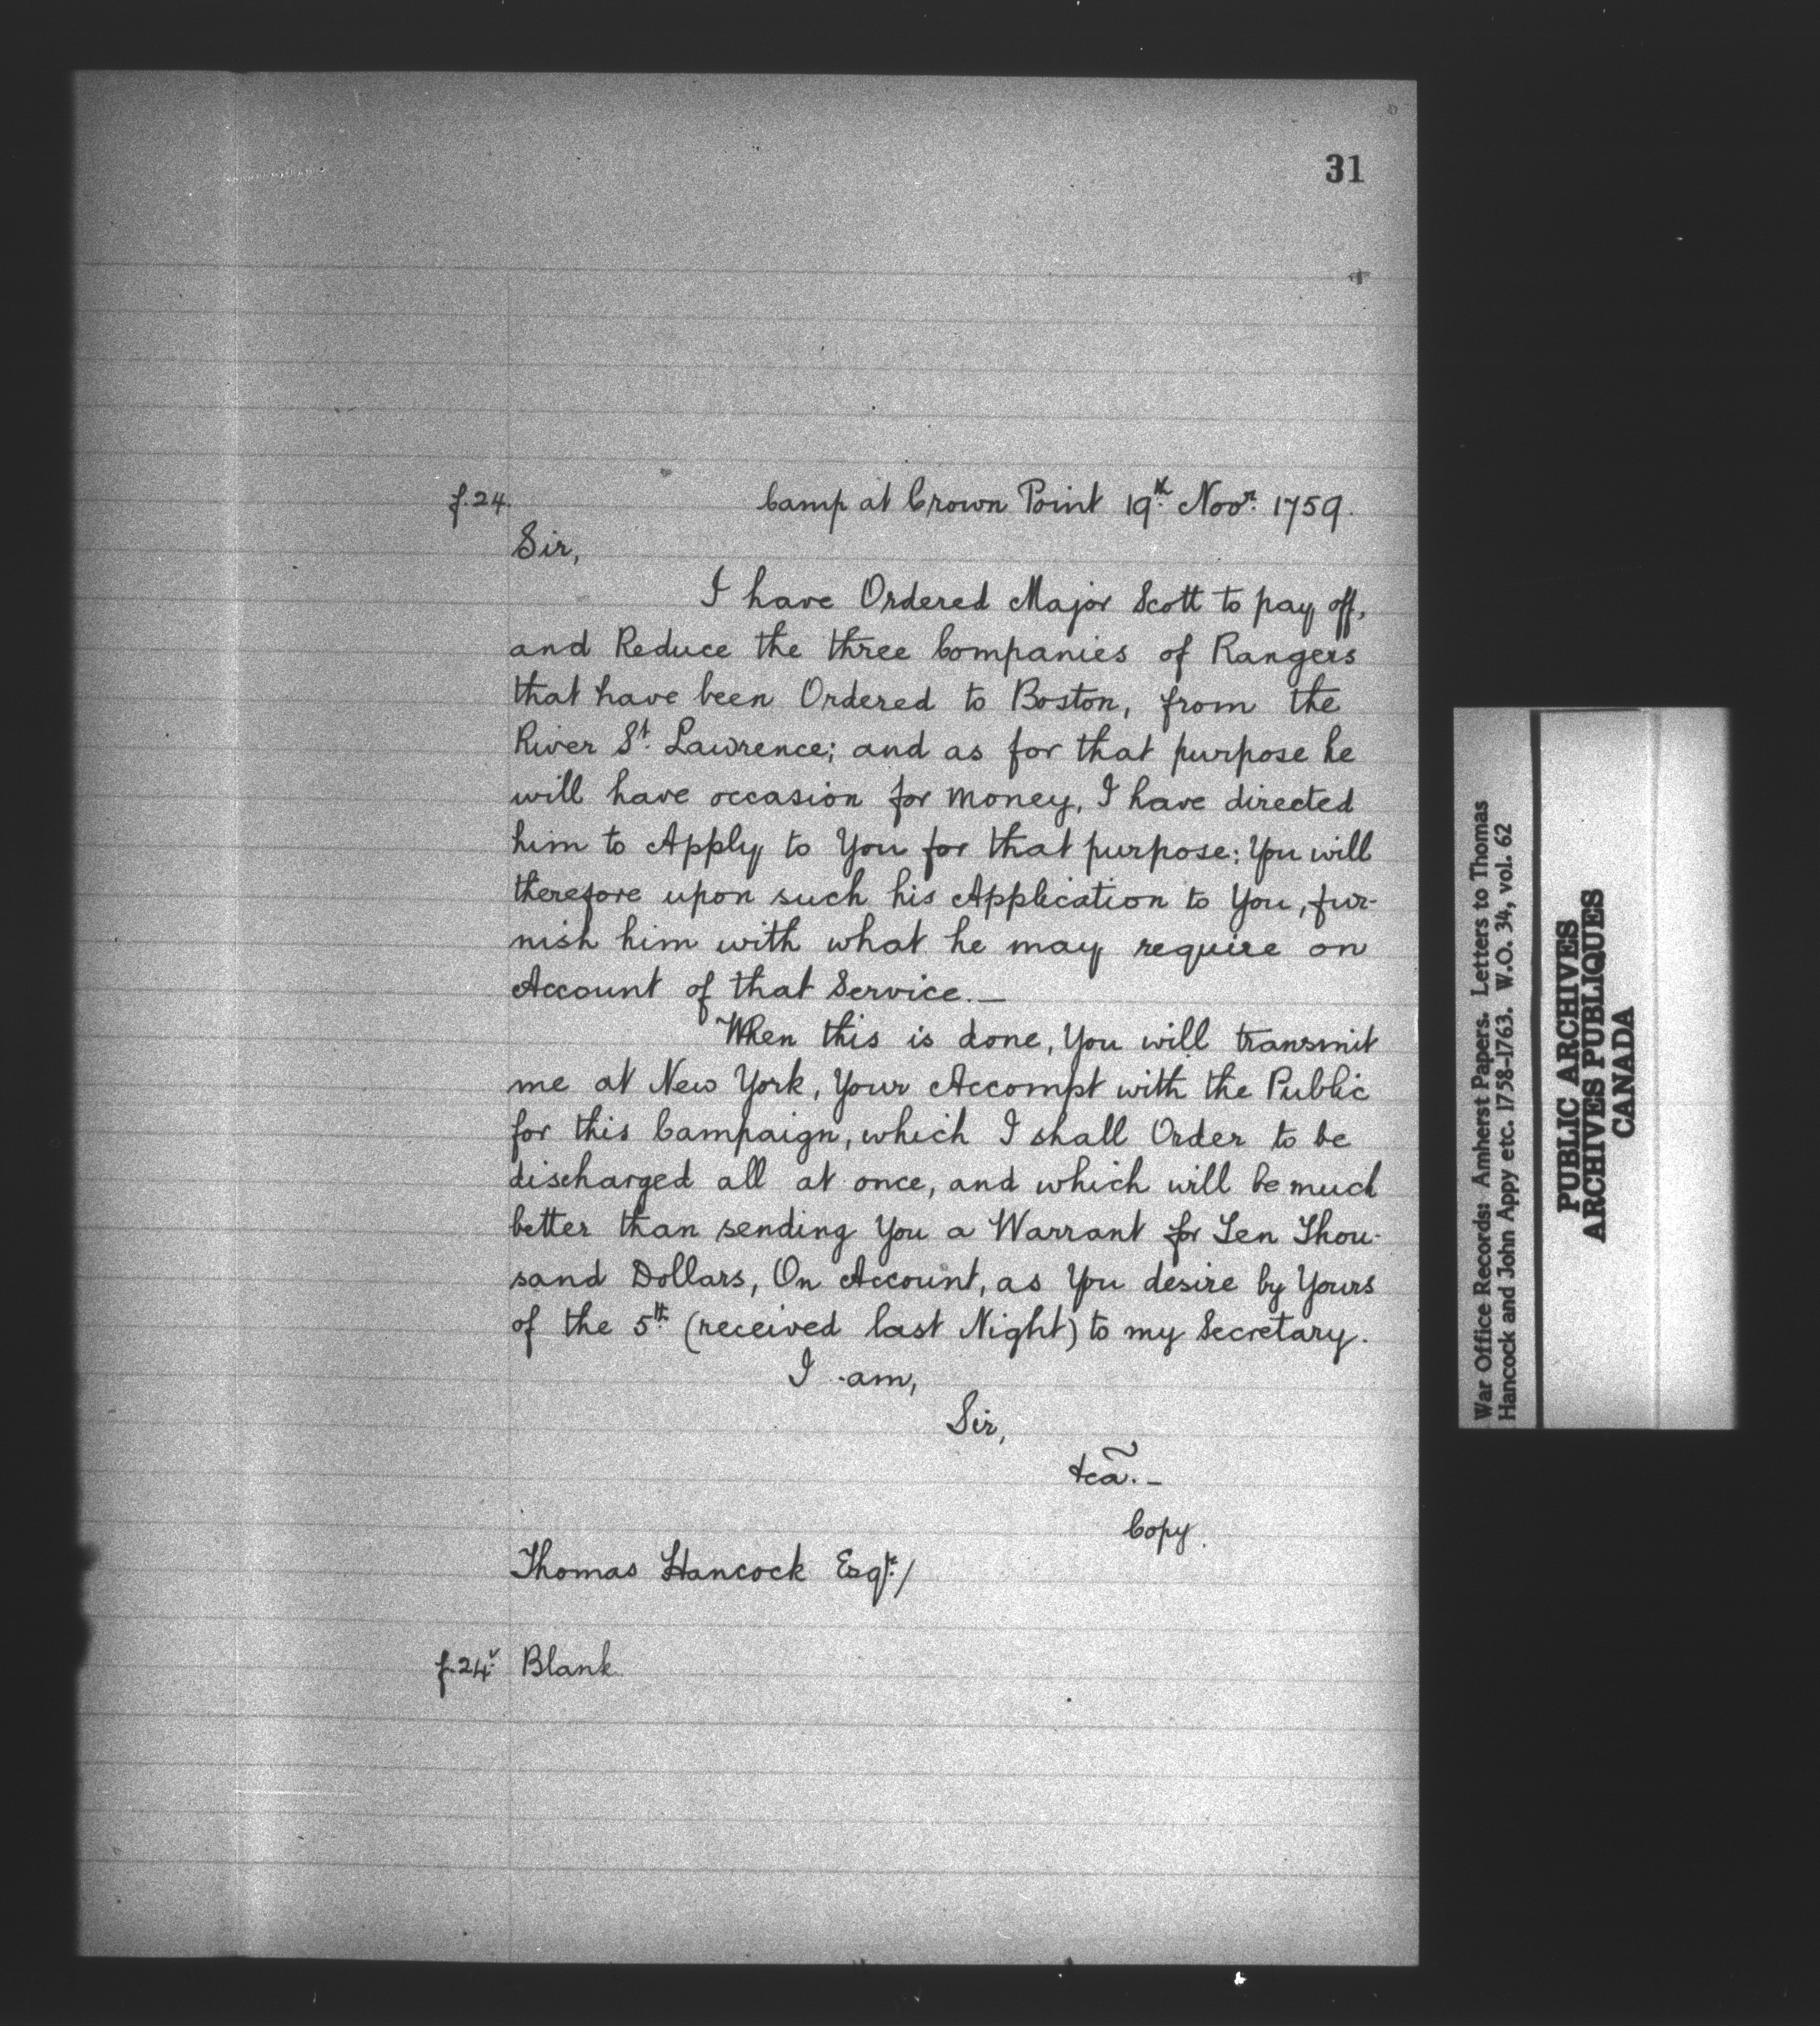 31
f.24. Camp at Crown Point 19th. Novr. 1759.
Sir,
I have Ordered Major Scott to pay off,
and Reduce the three Companies of Rangers
that have been Ordered to Boston, from the
River St. Lawrence; and as for that purpose he
will have occasion for Money, I have directed
him to Apply to You for that purpose: You will
therefore upon such his Application to You, fur-
nish him with what he may require on
Account of that Service.—
When this is done, You will transmit
me at New York, Your Accompt with the Public
for this Campaign, which I shall Order to be
discharged all at once, and which will be much
better than sending You a Warrant for Ten Thou-
sand Dollars, On Account, as You desire by Yours
of the 5th. (received last Night) to my Secretary.
I am,
Sir,
&ca.—
Copy.
Thomas Hancock Esqr./
f.24v. Blank
War Office Records: Amherst Papers. Letters to Thomas
Hancock and John Appy etc. 1758-1763. W.O. 34, vol. 62
PUBLIC ARCHIVES
ARCHIVES PUBLIQUES
CANADA